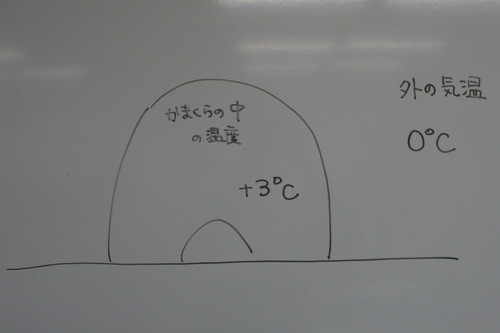 かまくらの中
の温度
+3°C
外の気温
0°C